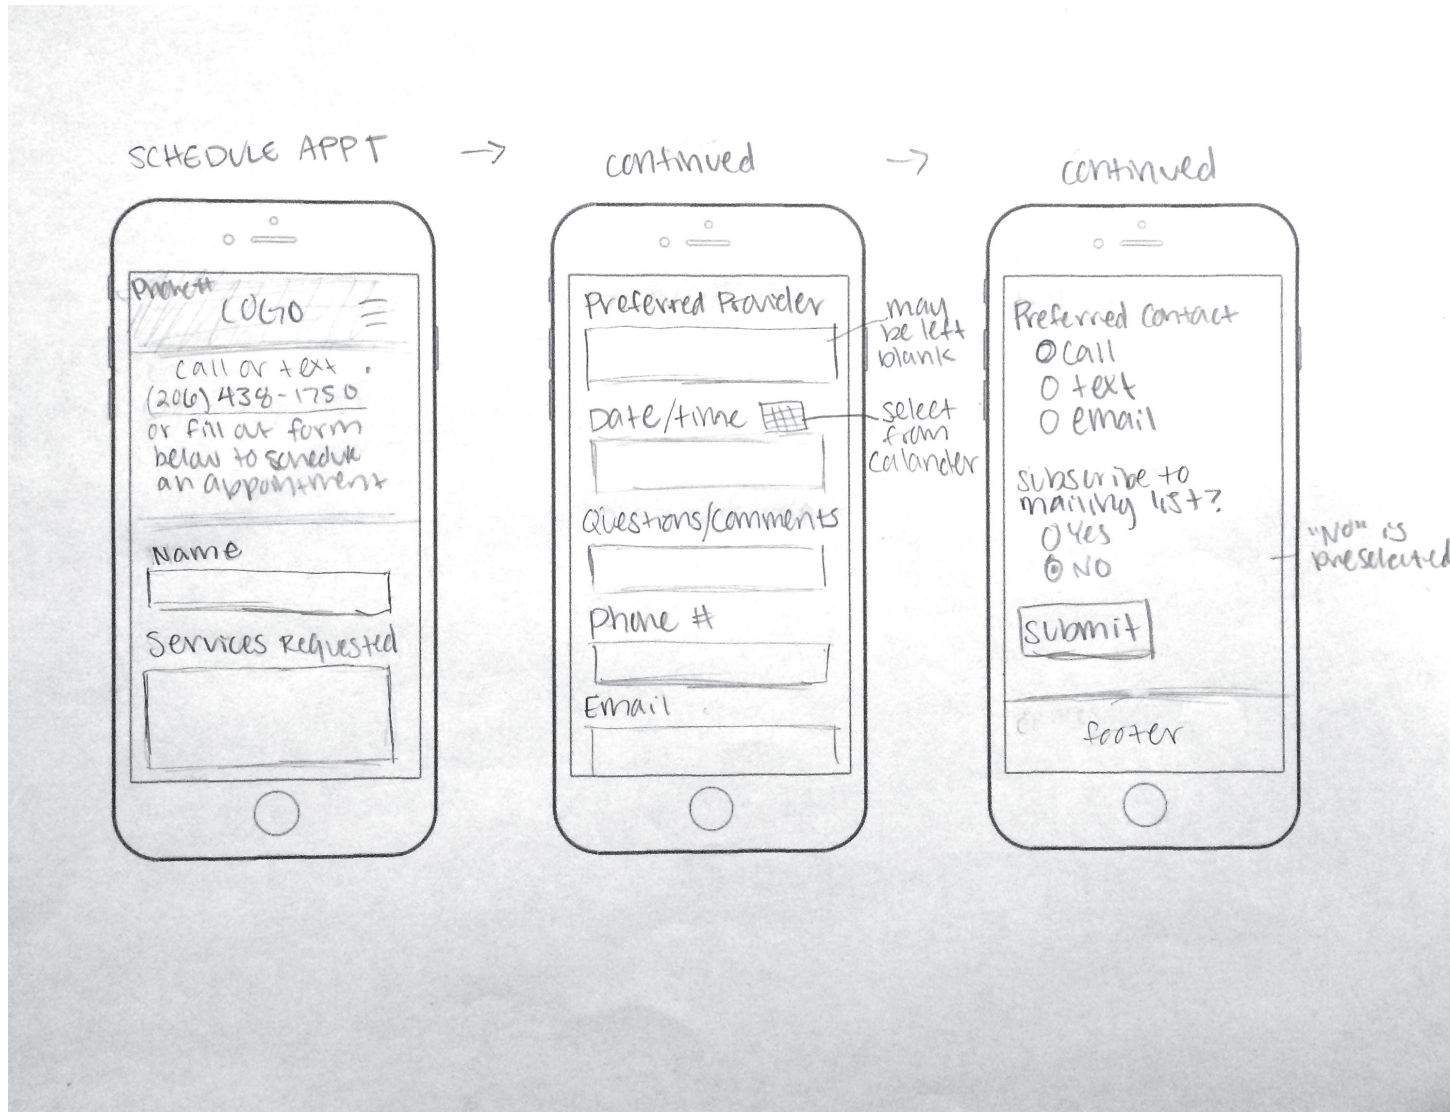 SCHEDULE APPT →
continued →
continued
Phone#
LOGO
call or text
(206) 438-1750
or fill out form
below to schedule
an appointment
Name
Services Requested
Preferred Provider
may
be left
blank
Date/time
select
from
calander
Questions/Comments
Phone #
Email
Preferred Contact
call
text
email
subscribe to
mailing list?
Yes
NO
"NO" is
preselected
submit
footer